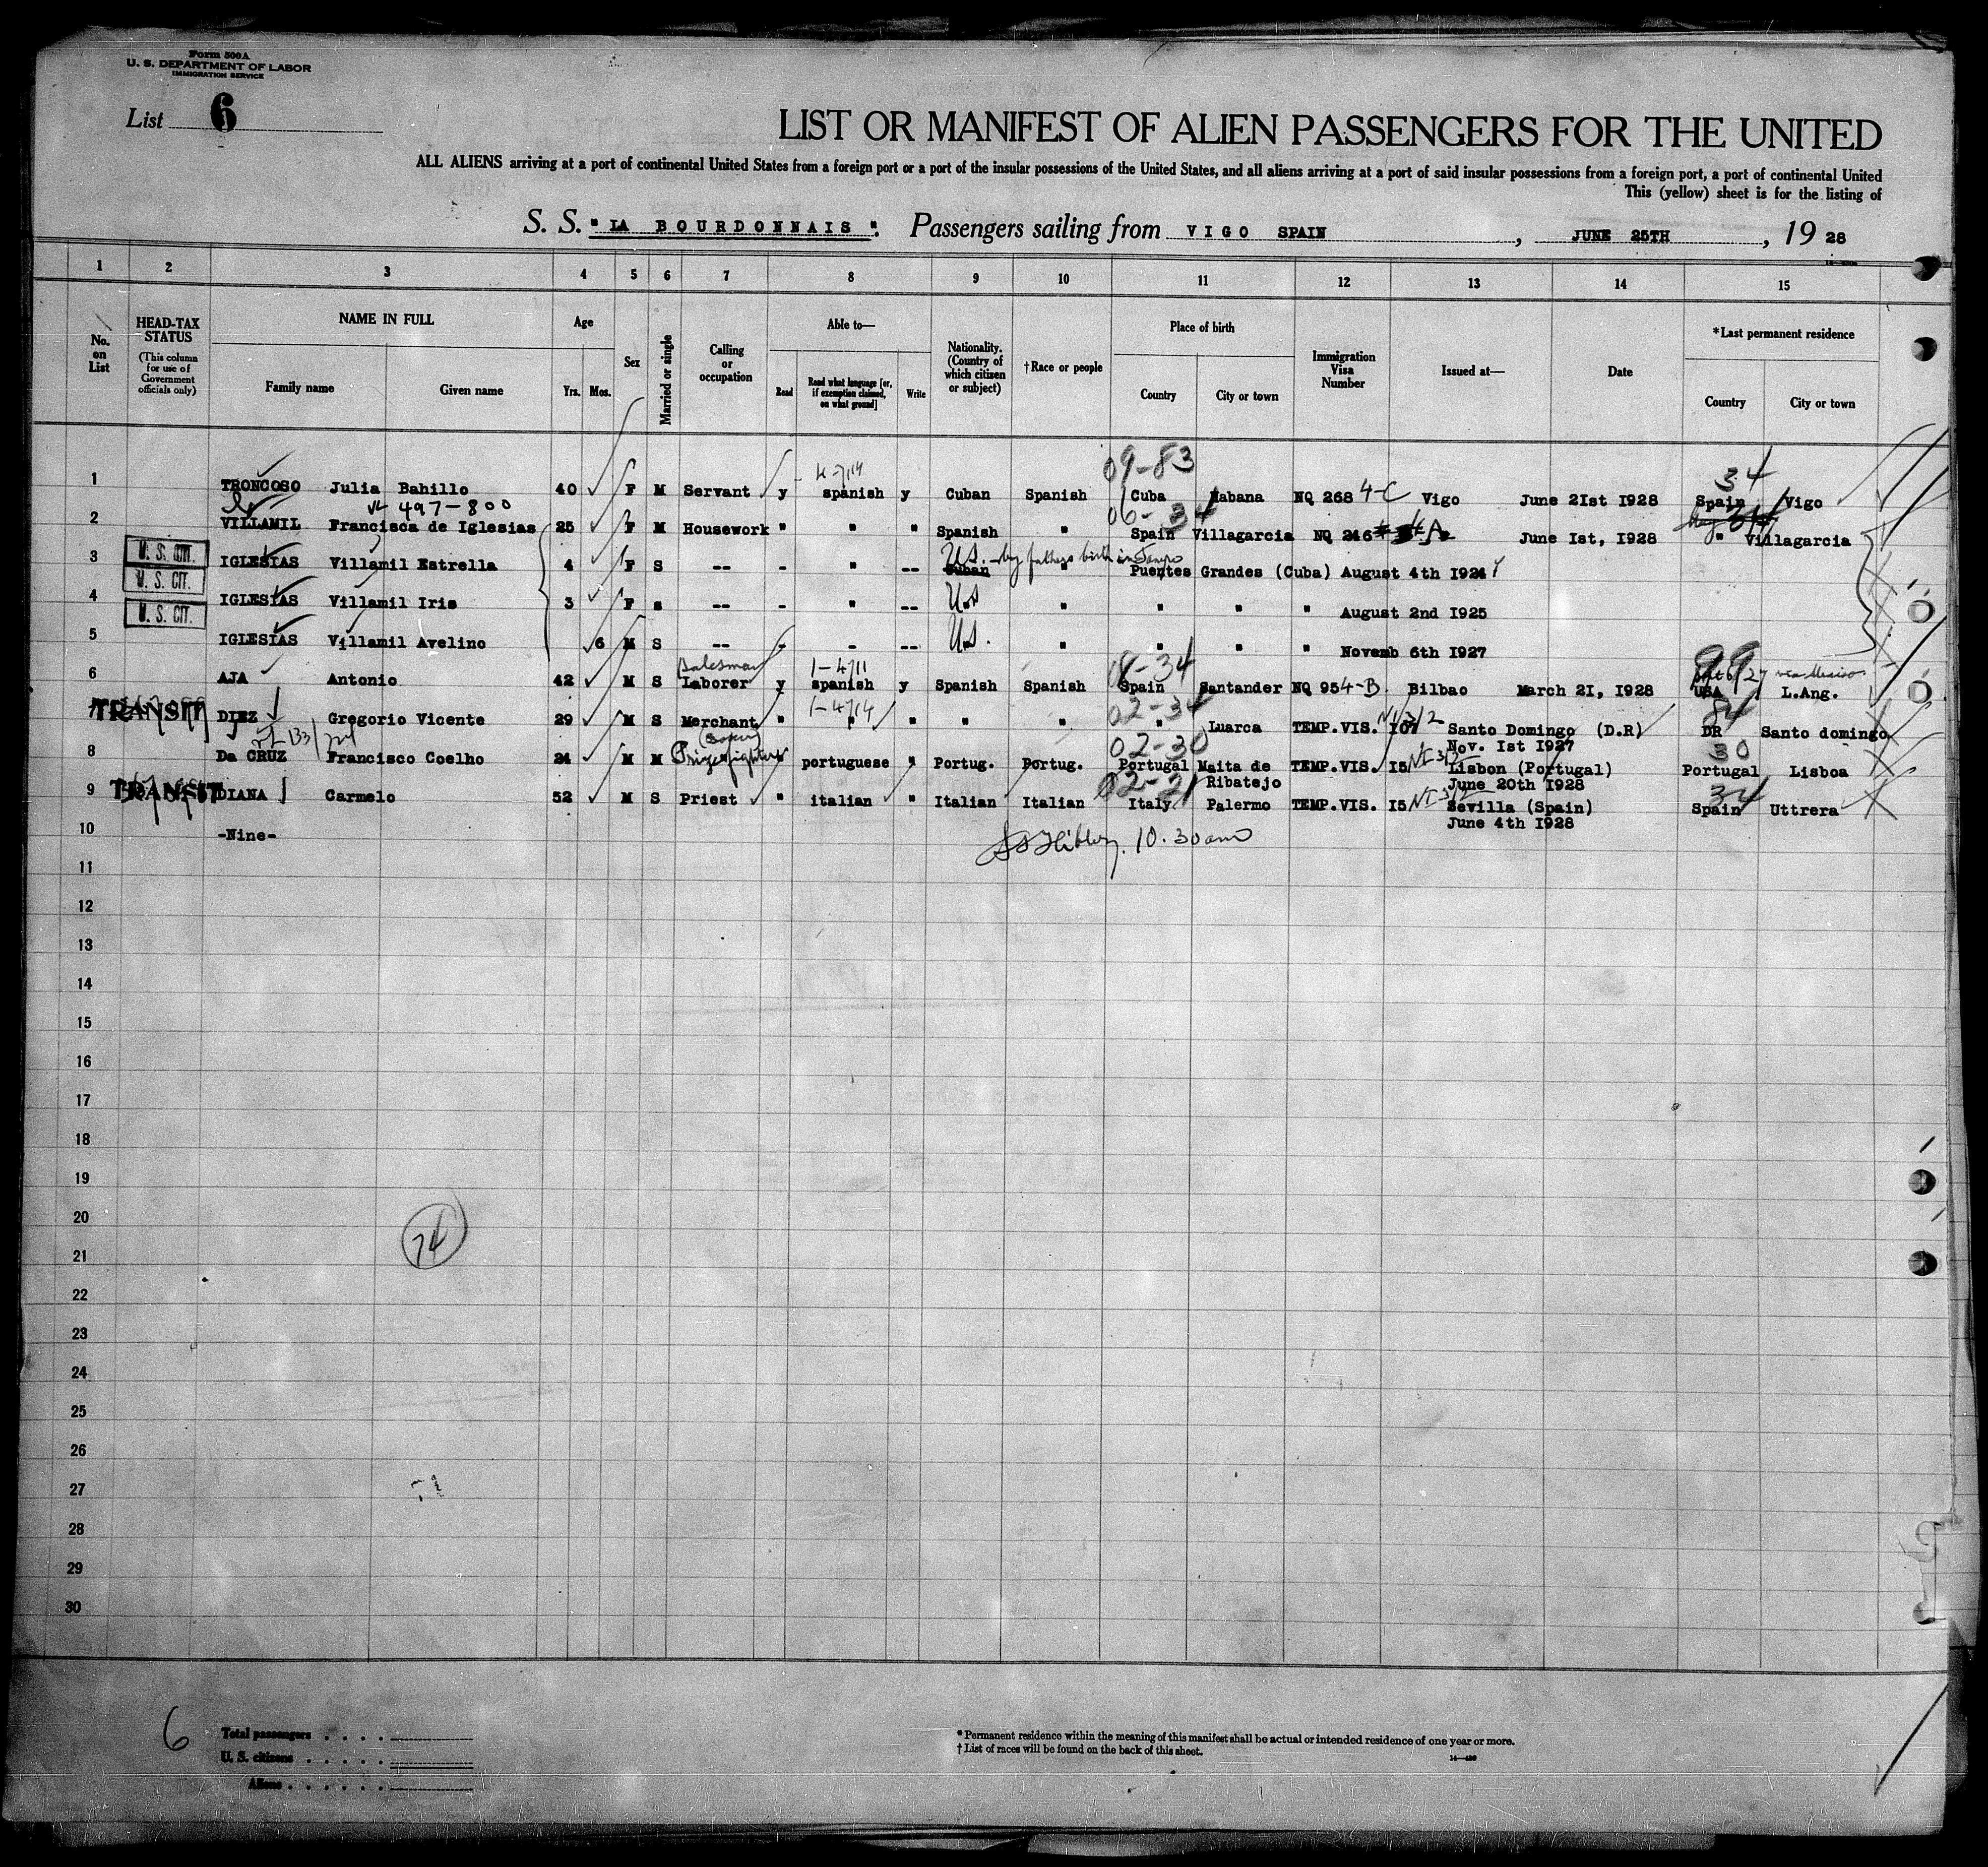 Form 500A
U. S. DEPARTMENT OF LABOR
IMMIGRATION SERVICE
List 6
LIST OR MANIFEST OF ALIEN PASSENGERS FOR THE UNITED
ALL ALIENS arriving at a port of continental United States from a foreign port or a port of the insular possessions of the United States, and all aliens arriving at a port of said insular possessions from a foreign port, a port of continental United
This (yellow) sheet is for the listing of
S. S. "LA BOURDONNAIS". Passengers sailing from VIGO SPAIN, JUNE 25TH, 19 28
1 2 3 4 5 6 7 8 9 10 11 12 13 14 15
No. on List
HEAD-TAX STATUS
(This column for use of Government officials only)
NAME IN FULL
Family name Given name
Age
Yrs. Mos.
Sex
Married or single
Calling or occupation
Able to—
Read
Read what language [or, if exemption claimed, on what ground]
Write
Nationality. (Country of which citizen or subject)
†Race or people
Place of birth
Country City or town
Immigration Visa Number
Issued at—
Date
*Last permanent residence
Country City or town
09-83 34
1 TRONCOSO Julia Bahillo 40 F M Servant y spanish y Cuban Spanish Cuba Habana NQ 268 4-C Vigo June 2Ist I928 Spain Vigo
497-800 06-34
2 VILLAMIL Francisca de Iglesias 25 F M Housework " " " Spanish " Spain Villagarcia NQ 246 June Ist, I928 " Villagarcia
U. S. CIT.
U.S. - by fathers birth in
3 IGLESIAS Villamil Estrella 4 F S -- - " -- Cuban " Puentes Grandes (Cuba) August 4th I924
U. S. CIT.
4 IGLESIAS Villamil Iris 3 F s -- - " -- U.S " " " " August 2nd I925
U. S. CIT.
5 IGLESIAS Villamil Avelino 6 M S -- - - -- U.S. " " " " Novemb 6th I927
Salesman 1-4711 34 99
6 AJA Antonio 42 M S Laborer y spanish y Spanish Spanish Spain Santander NQ 95 4-B Bilbao March 2I, I928 USA L.Ang.
1-4714 02-34 84
TRANSIT
7 DIEZ Gregorio Vicente 29 M S Merchant " " " " " " Luarca TEMP.VIS. I07 Santo Domingo (D.R) DR Santo domingo
Nov. Ist I927
(Boxer) 02-30 30
8 Da CRUZ Francisco Coelho 24 M M Prizefighter portuguese " Portug. Portug. Portugal Maita de TEMP.VIS. I5 Lisbon (Portugal) Portugal Lisboa
Ribatejo June 20th I928
TRANSIT
02-21 34
9 DIANA Carmelo 52 M S Priest " italian " Italian Italian Italy Palermo TEMP.VIS. I5 Sevilla (Spain) Spain Uttrera
June 4th I928
10 -Nine-
10.30 am
11
12
13
14
15
16
17
18
19
20
74
21
22
23
24
25
26
27
28
29
30
6
Total passengers
U. S. citizens
Aliens
* Permanent residence within the meaning of this manifest shall be actual or intended residence of one year or more.
† List of races will be found on the back of this sheet.